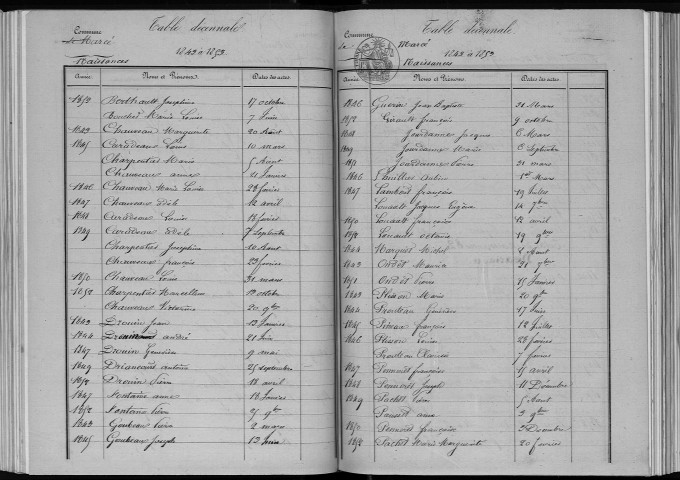 Table décennale
Commune
de Marcé
1843 à 1853
Naissances
Année Noms et Prénoms Dates des actes
1852 Berthault Joséphine 17 octobre
Bouchet Marie Louise 7 Juin
1843 Chauveau Marguerite 20 Août
1845 Cerisseau Louise 10 mars
Charpentier Marie 5 Août
Chauveau anne 4 Janvier
1846 Chauveau Marie Louise 28 février
1847 Chauveau Adèle 12 avril
1848 Louise 18 février
1849 Adèle 7 Septembre
Charpentier Joséphine 10 Août
Chauveau françois 23 février
1850 Chauveau Louise 31 mars
1852 Charpentier Marcelline 12 octobre
Chauveau Victorine 20 9bre
1843 Drouin Jean 13 Janvier
1844 Drouin andré 21 Juin
1847 Drouin Geneviève 9 mai
1849 antoine 25 Septembre
1852 Drouin Pierre 18 avril
1847 Fontaine anne 18 Janvier
1852 Fontaine Pierre 25 9bre
1843 Goubeau Pierre 2 mars
1845 Goubeau Joseph 13 Juin
Table décennale
Commune
de Marcé
1843 à 1853
Naissances
Année Noms et Prénoms Dates des actes
1846 Guérin Jean Baptiste 21 Mars
1852 Girault françois 9 octobre
1848 Jourdanne Jacques 6 Mars
1849 Jourdanne Marie 6 Septembre
1851 Jourdanne Pierre 31 mars
1846 1er Mars
1847 Lambert françois 19 Juillet
Louault Jacques Eugène 14 7bre
1850 Louault françoise 12 avril
1852 Louault octavie 19 9bre
1844 Marquet Michel 2 Août
1843 Oudet Maurice 21 7bre
1851 Oudet Pierre 15 Janvier
1843 Plisson Marie 20 9bre
1844 Geneviève 17 Juin
1845 françois 12 Juillet
1846 Plisson Louise 28 février
Clarisse 7 février
1847 françois 15 avril
1848 Joseph 11 Décembre
1849 Pachet Pierre 5 Août
anne 3 9bre
1850 françoise 3 Décembre
1852 Pachet Marie Marguerite 20 février